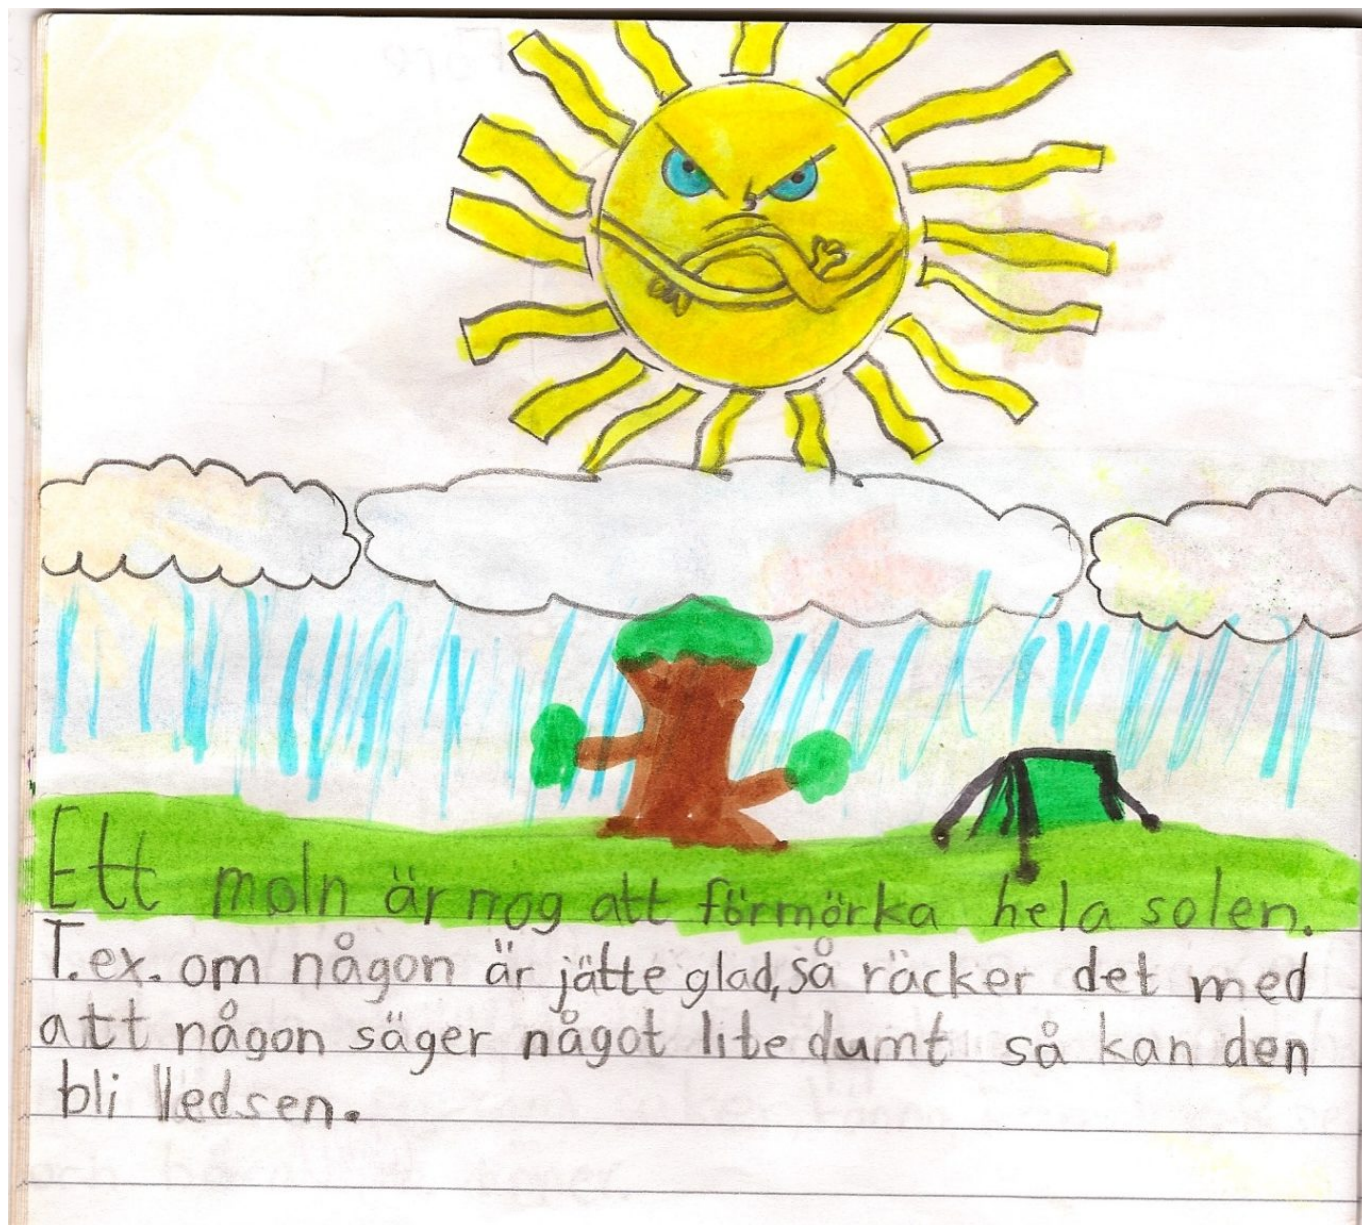 Ett moln är nog att förmörka hela solen.
T.ex. om någon är jätte glad, så räcker det med
att någon säger något lite dumt så kan den
bli ledsen.